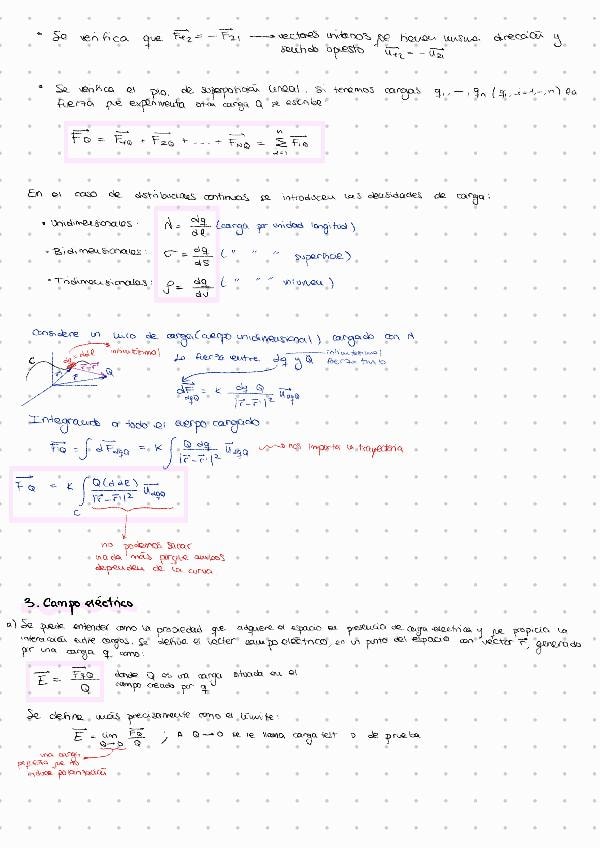 • Se verifica que F₁₂ = - F₂₁ → vectores unitarios que tienen misma dirección y
sentido opuesto u₁₂ = - u₂₁
• Se verifica el pro. de superposición lineal. Si tenemos cargas q₁, ..., qₙ (qᵢ, i=1,...,n) la
fuerza que experimenta otra carga Q se escribe
F_Q = F_1Q + F_2Q + ... + F_NQ = Σ_{i=1}^{n} F_iQ
En el caso de distribuciones continuas se introducen las densidades de carga:
• Unidimensionales: λ = dq/dl (carga por unidad longitud)
• Bidimensionales: σ = dq/dS ( " " " superficie)
• Tridimensionales: ρ = dq/dV ( " " " volumen)
Considere un curco de carga (cuerpo unidimensional), cargado con λ
C dq = λdl infinitesimal
La fuerza entre dq y Q infinitesimal
Q
dF_dqQ = K dq Q/|r - r'|² u_dqQ
Integrando a todo el cuerpo cargado
F_Q = ∫ dF_dqQ = K ∫ Q dq/|r - r'|² u_dqQ → nos importa la trayectoria
F_Q = K ∫_C Q(λdl)/|r - r'|² u_dqQ
no podemos sacar
nada más porque ambos
dependen de la curva
3. Campo eléctrico
a) Se puede entender como la propiedad que adquiere el espacio en presencia de carga eléctrica y que propicia la
interacción entre cargas. Se define el vector campo eléctrico, en un punto del espacio con vector r, generado
por una carga q, como:
E = F_qQ/Q donde Q es una carga situada en el
campo creado por q
Se define más precisamente como el límite:
E = lim_{Q→0} F_Q/Q ; A Q→0 se le llama carga test o de prueba
una carga
pequeña que no
induce polarización